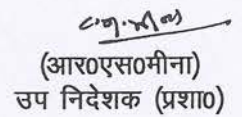 (आर0एस0मीना)
उप निदेशक (प्रशा0)